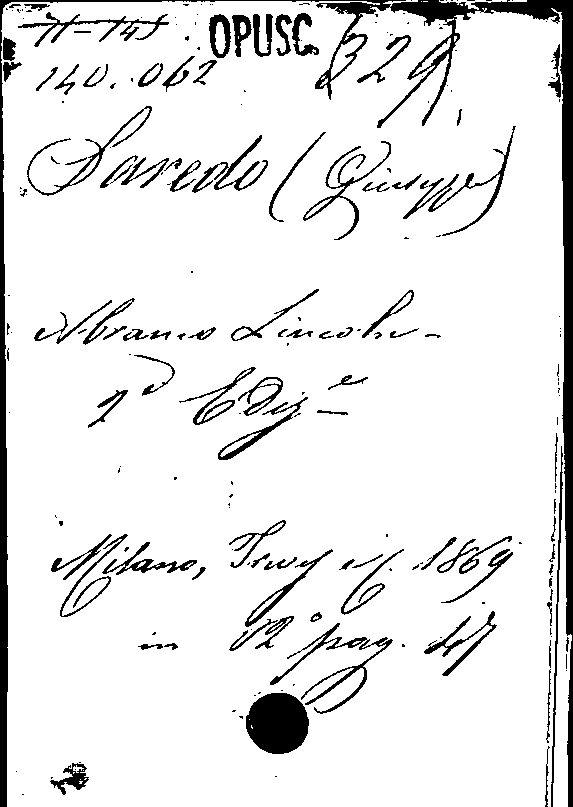 OPUSC. 329
140.062
Saredo (Giuseppe)
Abramo Lincoln -
2ª Edizᵉ
Milano, Trev. ed. 1869
in 12° pag. 47